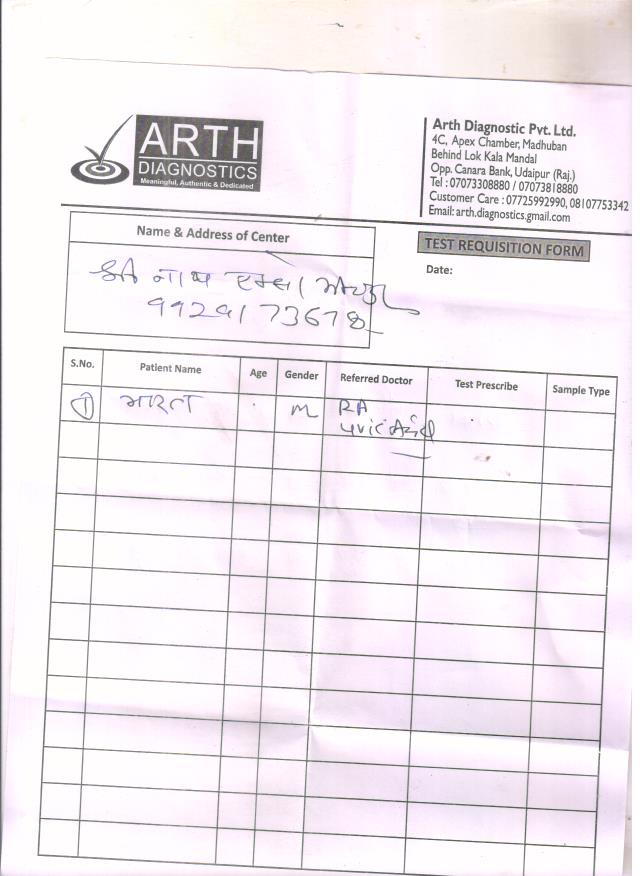 ARTH
DIAGNOSTICS
Meaningful, Authentic & Dedicated
Arth Diagnostic Pvt. Ltd.
4C, Apex Chamber, Madhuban
Behind Lok Kala Mandal
Opp. Canara Bank, Udaipur (Raj.)
Tel : 07073308880 / 07073818880
Customer Care : 07725992990, 08107753342
Email: arth.diagnostics.gmail.com
Name & Address of Center
TEST REQUISITION FORM
Date:
श्री नाथ
S.No. Patient Name Age Gender Referred Doctor Test Prescribe Sample Type
1 भारत M RA